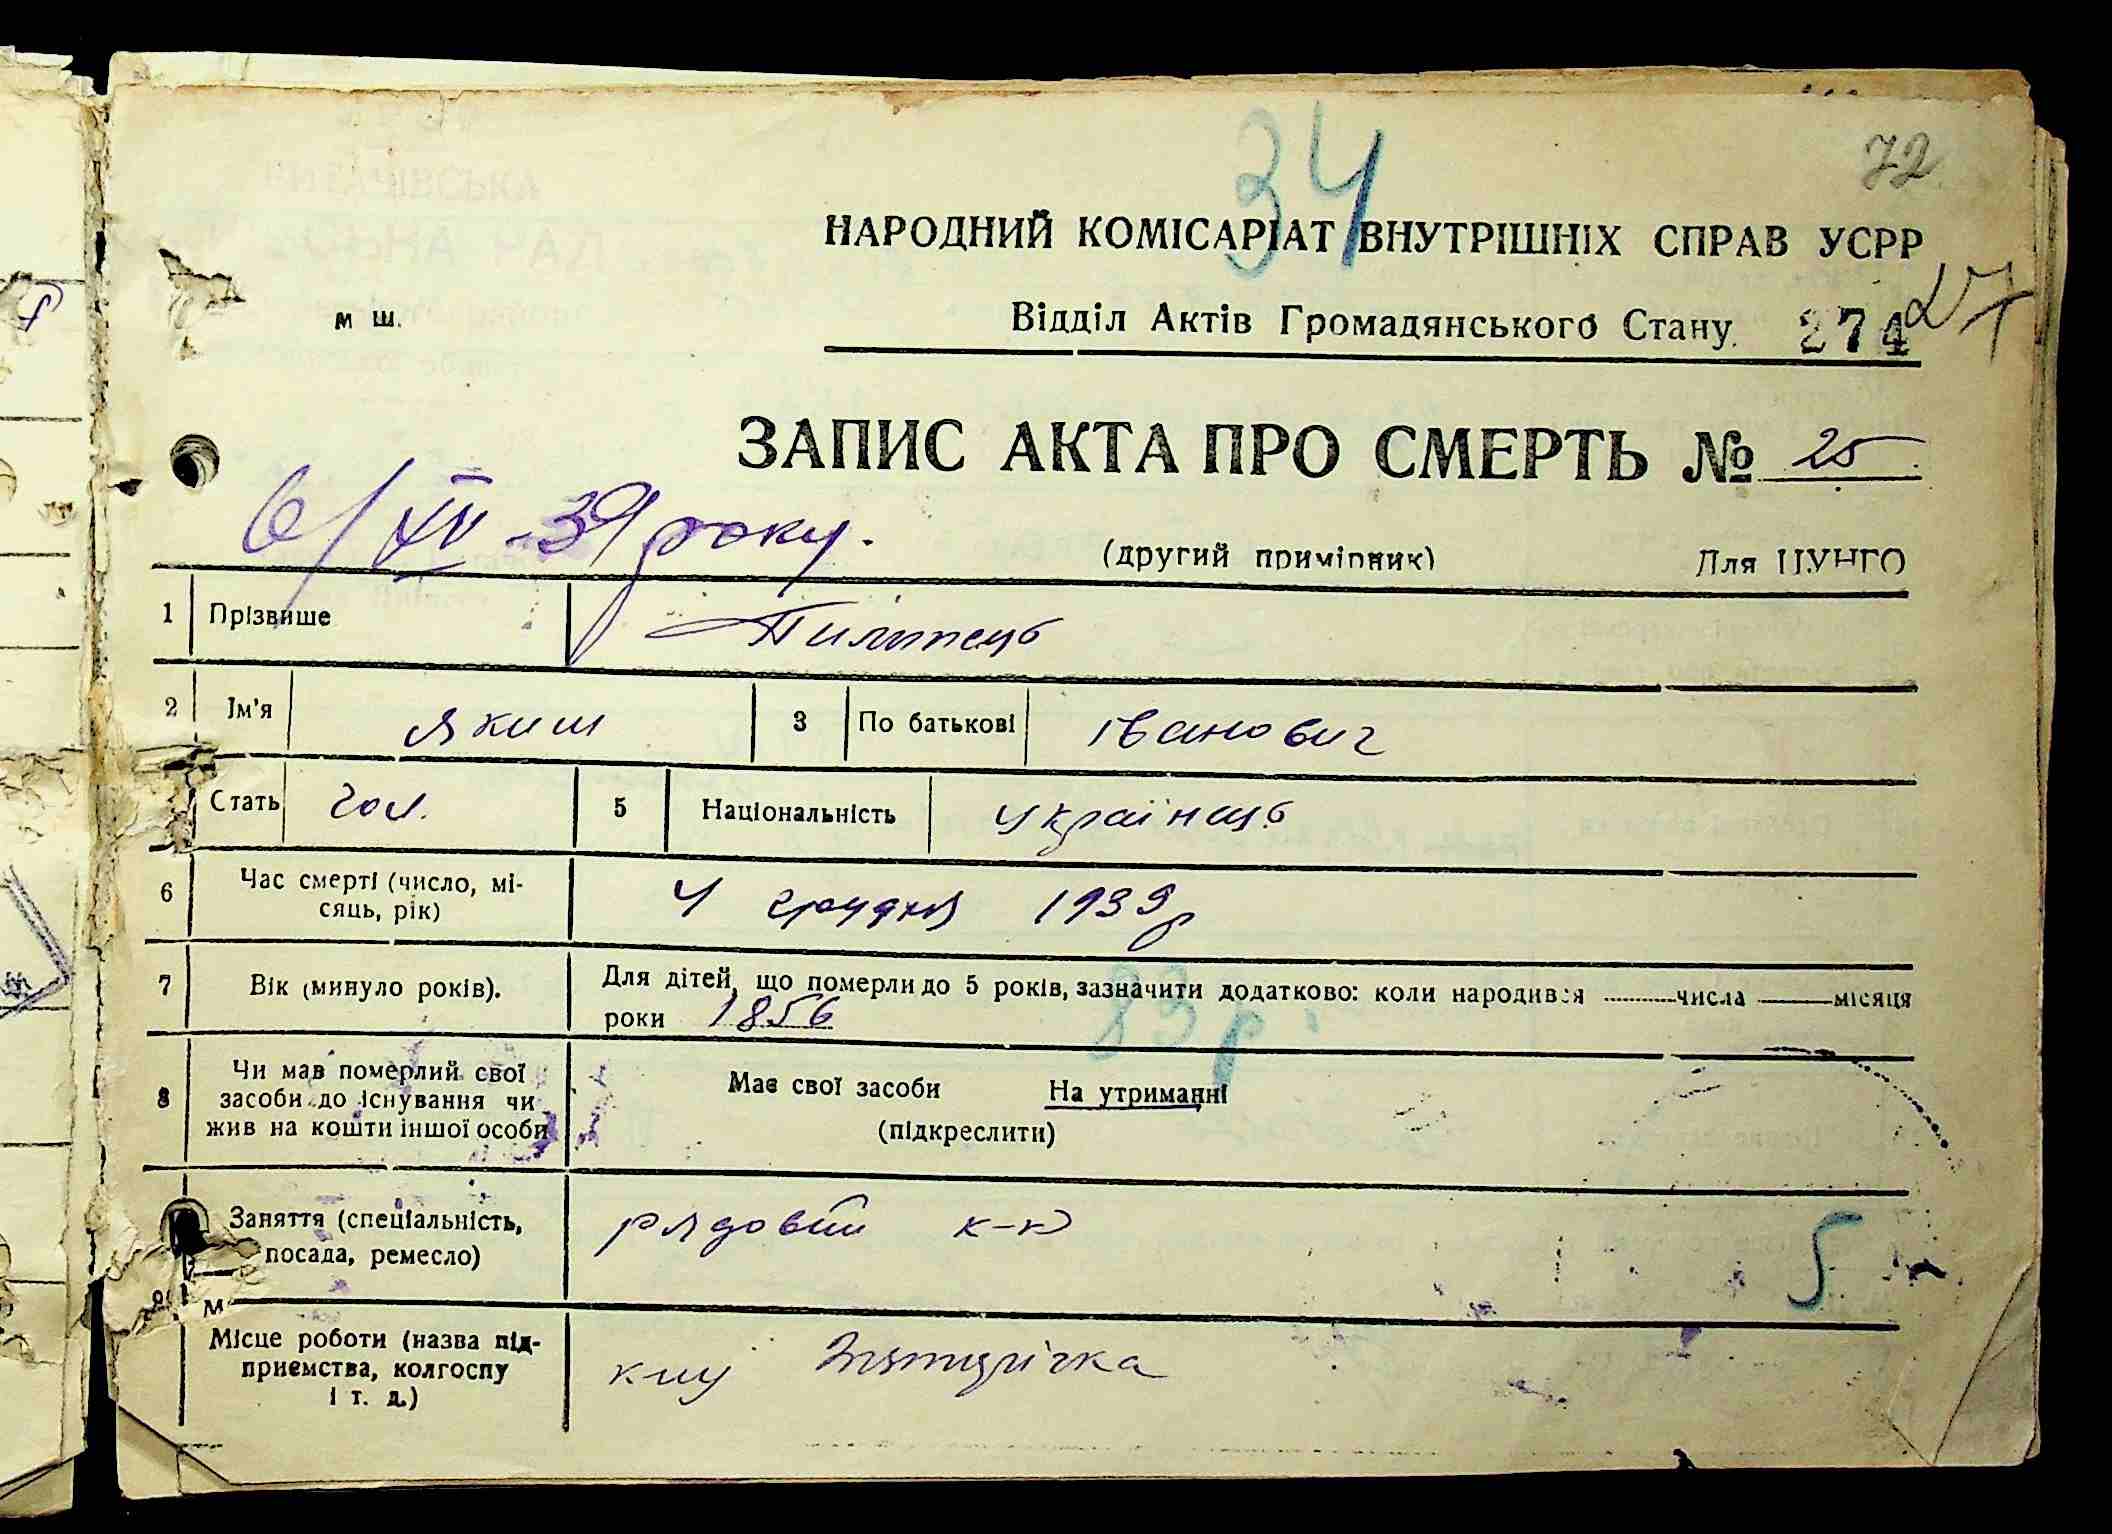 34
72
НАРОДНИЙ КОМІСАРІАТ ВНУТРІШНІХ СПРАВ УСРР
м ш.
Відділ Актів Громадянського Стану.
274
27
ЗАПИС АКТА ПРО СМЕРТЬ № 25
6/XII-39 року.
(другий примірник)
Для ЦУНГО
1 Прізвише Пилипець
2 Ім'я Яким 3 По батькові Іванович
Стать чол. 5 Національність українець
6 Час смерті (число, мі-
сяць, рік)
4 грудня 1939 р
7 Вік (минуло років).
Для дітей, що померли до 5 років, зазначити додатково: коли народився числа місяця
роки 1856
83 р.
8 Чи мав померлий свої
засоби до існування чи
жив на кошти іншої особи
Має свої засоби На утриманні
(підкреслити)
Заняття (спеціальність,
посада, ремесло)
рядовий к-к
5
9 м
Місце роботи (назва під-
приємства, колгоспу
і т. д.)
к-пу Пятирічка